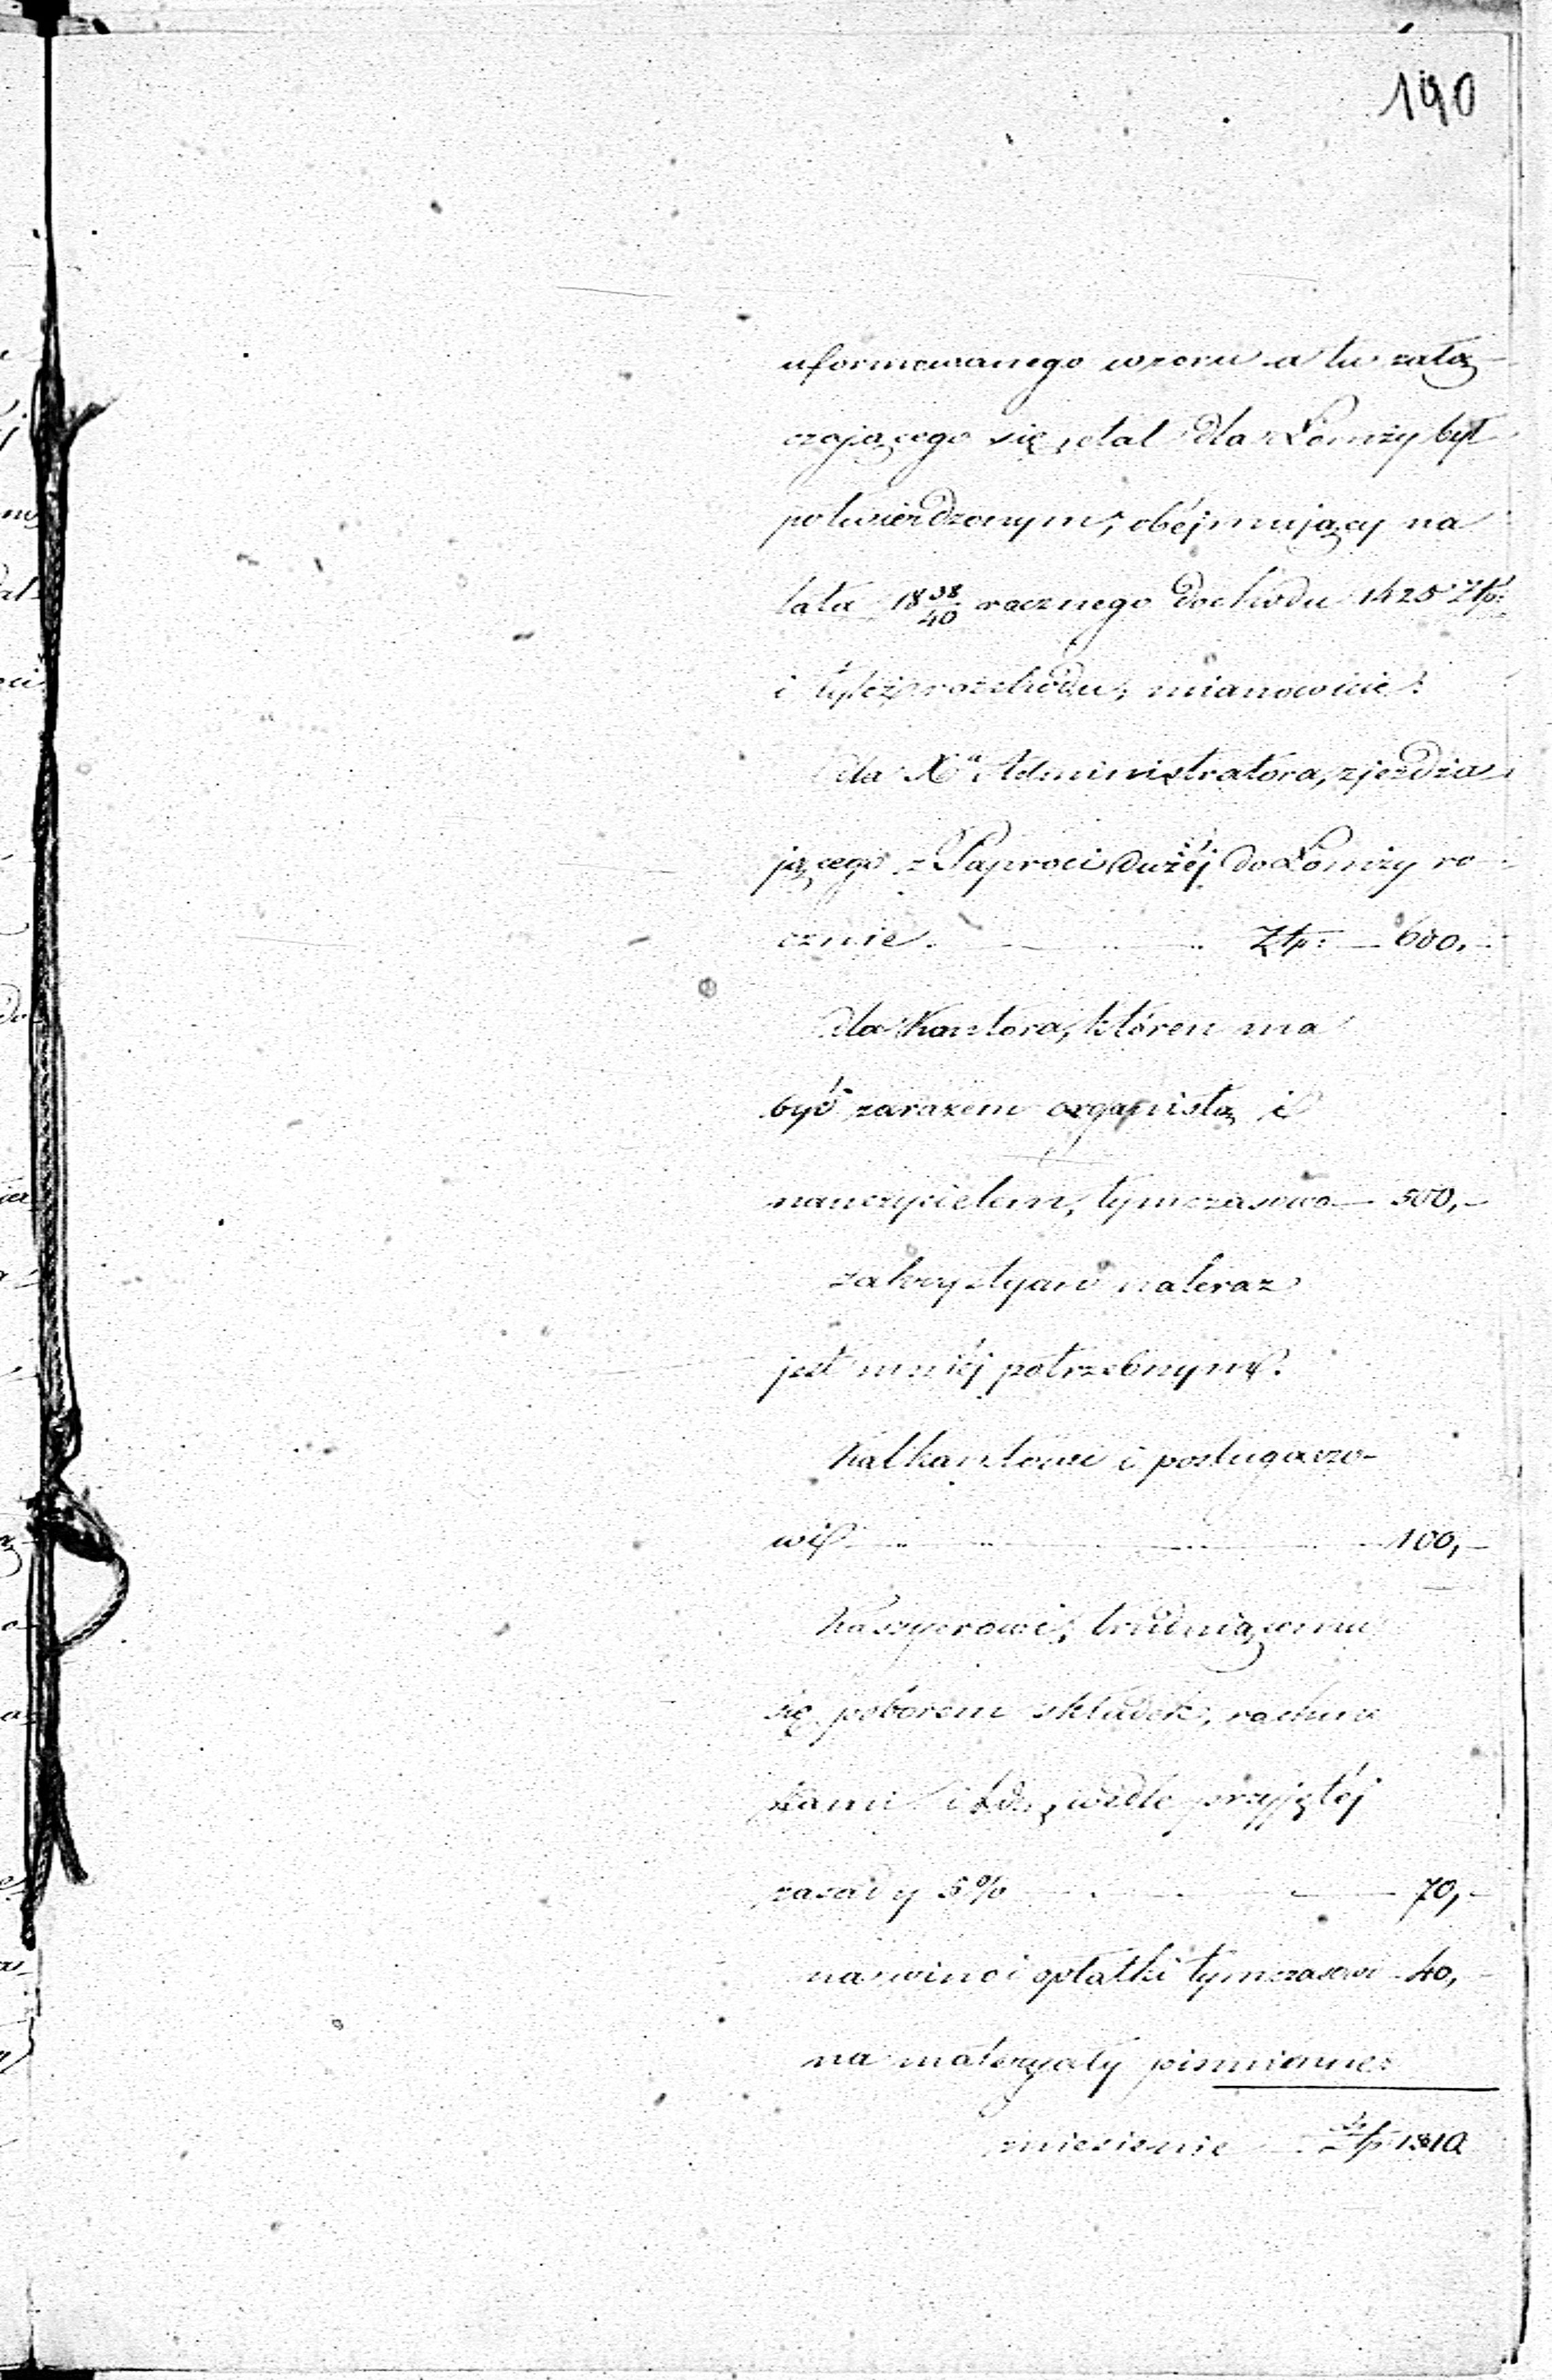 190
uformowanego wzoru a tu załą
czającego się, etat dla Łomży był
potwierdzonym, obéjmujący na
lata 18 38/40 rocznego dochodu 1425 Złp:
i tyleż rozchodu, mianowicie:
dla Xa Administratora, zjeżdża
jącego z Paproci Dużéj do Łomży ro-
cznie Złp: 600,-
dla Kantora, któren ma
być zarazem organistą i
nauczycielem, tymczasowo 500,-
zakrystyan nateraz
jest mniéj potrzebnym.
Kalkantowi i posługaczo-
wi 100,-
Kassyerowi, trudniącemu
się poborem składek, rachun
kami i t.d., wedle przyjętéj
zasady 5% 70,-
na wino i opłatki tymczasowo 40,-
na materyały piśmienne:
zniesienie Złp 1310